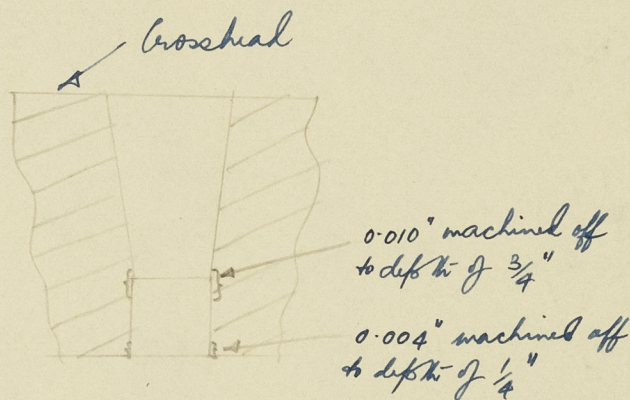 Crosshead
0·010" machined off
to depth of 3/4"
0·004" machined off
to depth of 1/4"